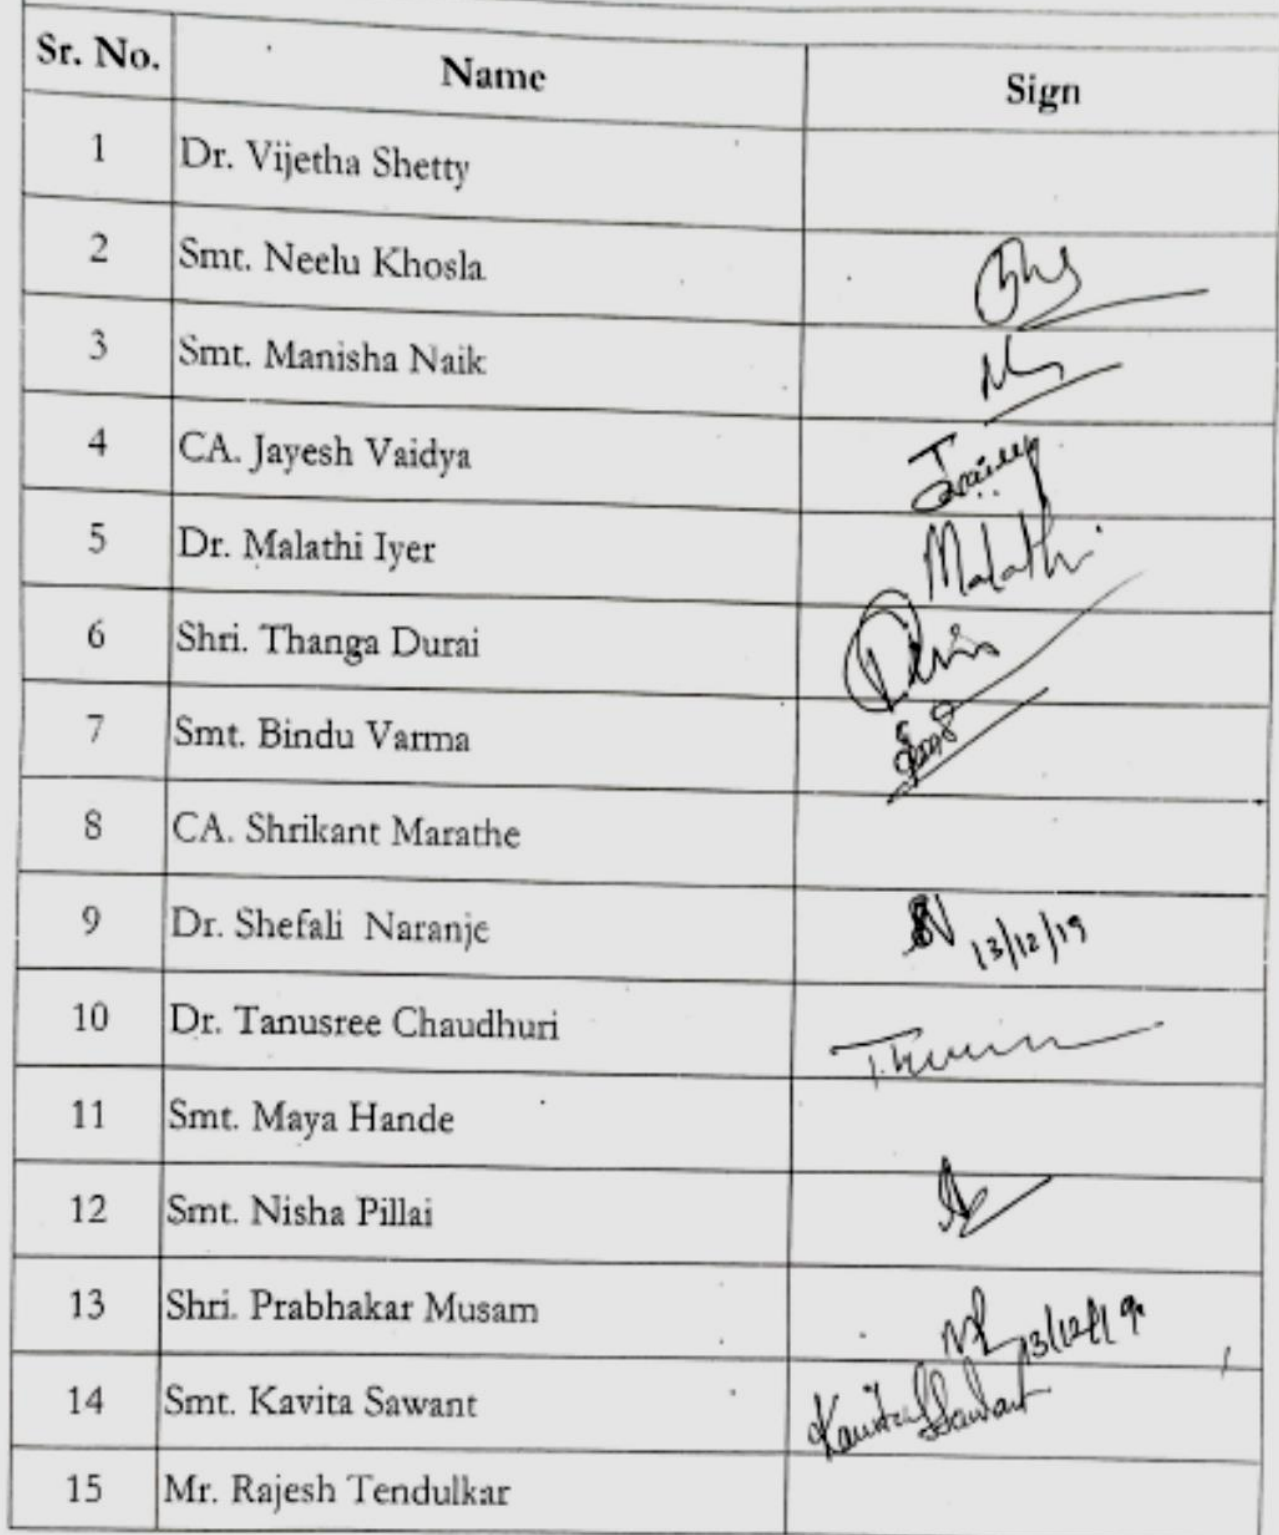 Sr. No. Name Sign
1 Dr. Vijetha Shetty
2 Smt. Neelu Khosla
3 Smt. Manisha Naik
4 CA. Jayesh Vaidya
5 Dr. Malathi Iyer Malathi
6 Shri. Thanga Durai
7 Smt. Bindu Varma
8 CA. Shrikant Marathe
9 Dr. Shefali Naranje SN 13/12/19
10 Dr. Tanusree Chaudhuri
11 Smt. Maya Hande
12 Smt. Nisha Pillai
13 Shri. Prabhakar Musam 13/12/19
14 Smt. Kavita Sawant Kavita Sawant
15 Mr. Rajesh Tendulkar